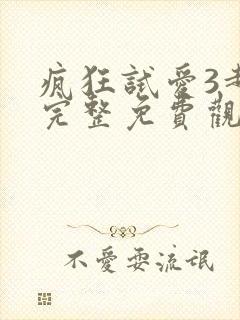 瘋狂試愛3
完整免費觀
不愛耍流氓